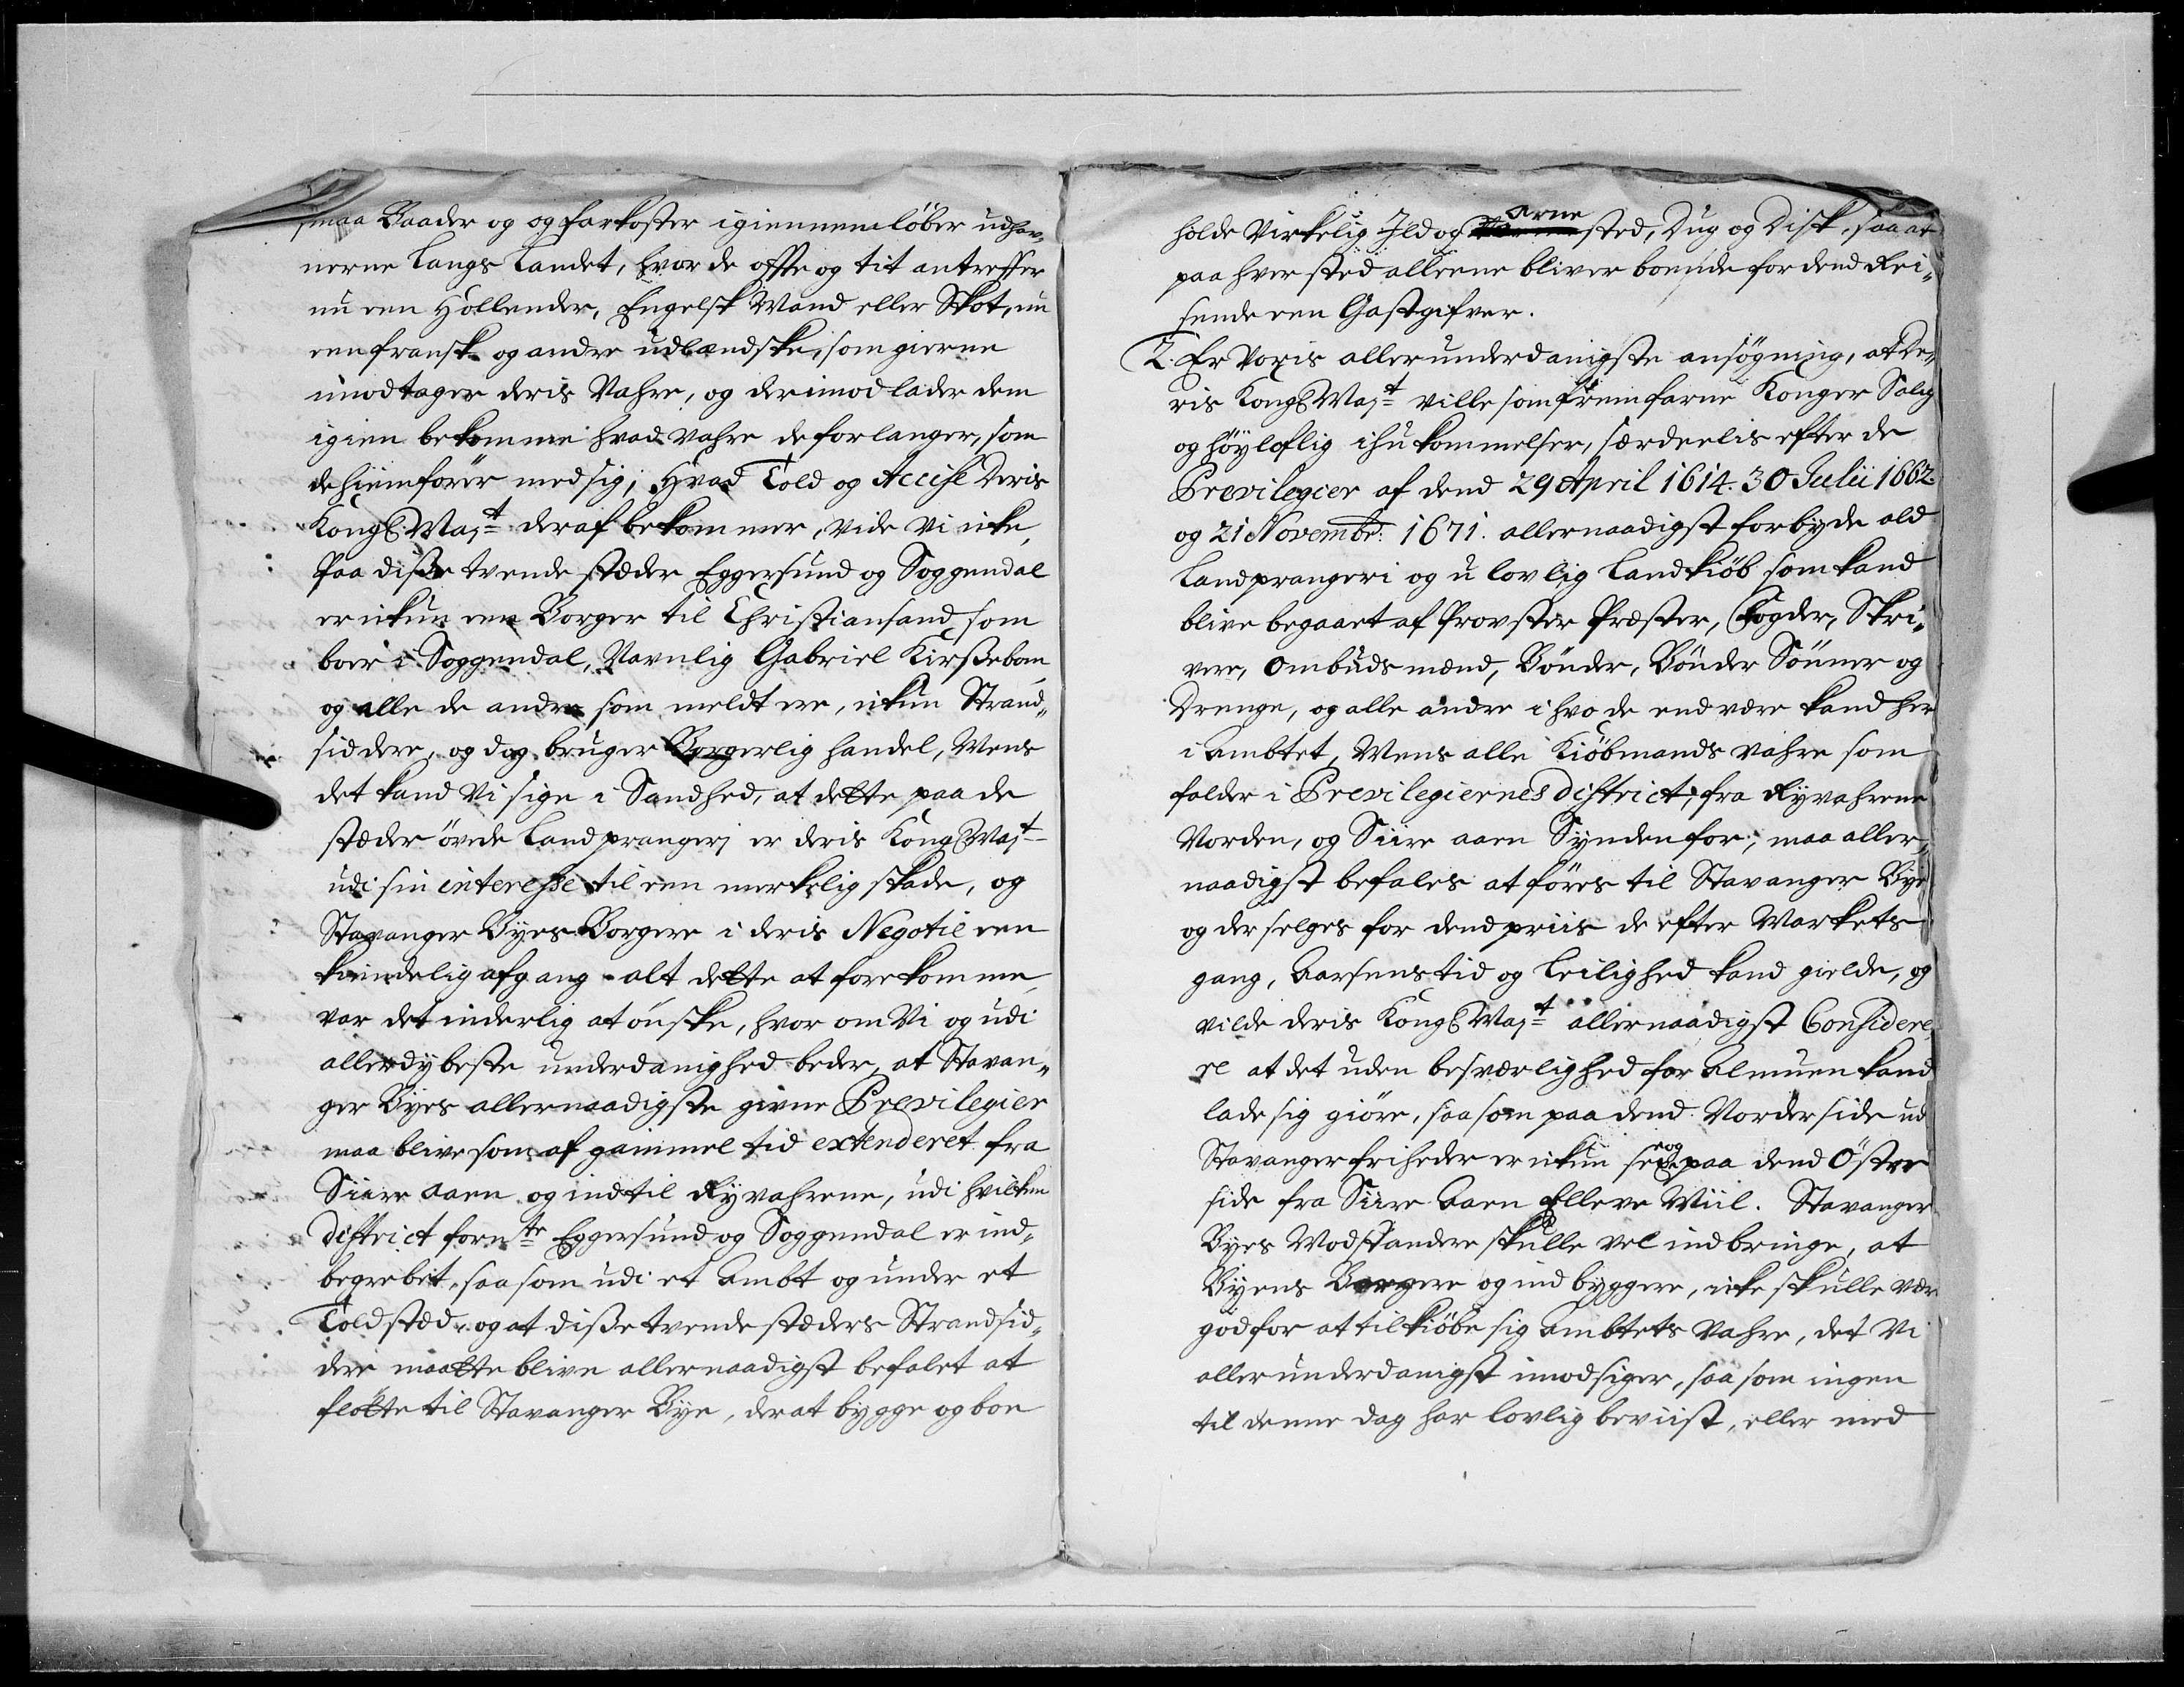 smaa Baader og og farkoster igiennemløber udhav„
nerne langs Landet, hvor de offte og tit antreffer
nu een Hollender, Engelsk Mand eller Skot, nu
een fransk og andre udlændske, som gierne
imodtager deris Vahre, og derimod lader dem
igien bekomme hvad vahre de forlanger, som
de hiemfører med sig; Hvad Told og Accise Deris
Kongl Majt deraf bekommer, vide Vi icke,
Paa disse tvende stæder Eggersund og Soggendal
er ickun een Borger til Christiansand som
boer i Soggendal, Navnlig Gabriel Kirssebom
og alle de andre som meldt ere, ickun Strand„
siddere, og dog bruger Borgerlig handel, Mens
det kand Vi sige i Sandhed, at dette paa de
stæder øvede Landprangeri er deris Kongl Majt
udi sin interesse til een merkelig skade, og
Stavanger Byes Borgere i deris Negotie een
kiendelig afgang - alt dette at forekomme,
var det inderlig at ønske, hvor om Vi og udi
allerdybeste underdanighed beder, at Stavan„
ger Byes allernaadigste givne Previlegier
maa blive som af gammel tid extenderet fra
Siire Aaen og indtil Ryvahrene, udi hvilken
district fornte Eggersund og Soggendal er ind„
begrebet, saa som udi et Ambt og under et
Toldsted, og at disse tvende stæders Strandsid„
dere maatte blive allernaadigst befalet at
fløtte til Stavanger Bye, der at bygge og boe
holde Virkelig Ild og arne sted, Dug og Disk, saa at
paa hver sted alleene bliver boende for dend Rei„
sende een Gastgifver.
2. Er Voris allerunderdanigste ansøgning, at De„
ris Kongl Majt ville som fremfarne Konger Salig
og høyloflig ihukommelser, særdeelis efter de
Previlegier af dend 29 April 1614. 30 Julii 1662.
og 21 Novembr: 1671. allernaadigst forbyde ald
Landprangeri og ulovlig Landkiøb som kand
blive begaaet af Provster Præster, Fogder, Skri„
vere, Ombudsmænd, Bønder, Bønder Sønner og
Drenge, og alle andre i hvo de end være kand her
i Ambtet, Mens alle Kiøbmands Vahre som
falder i Previlegiernes district, fra Ryvahrene
Norden, og Siire aaen Synden for, maa aller„
naadigst befales at føres til Stavanger Bye
og der selges for dend priis de efter Markets
gang, Aarsens tid og Leilighed kand gielde, og
vilde deris Kongl Majt allernaadigst Considere„
re at det uden besværlighed for Almuen kand
lade sig giøre, saa som paa dend Norder side ud
Stavanger friheder er ickun sex og paa dend Øster
side fra Siire Aaen Elleve Miil. Stavanger
Byes Modstandere skulle vel indbringe, at
Byens Borgere og indbyggere, icke skulle være
god for at tilkiøbe sig Ambtets Vahre, det Vi
allerunderdanigst imodsiger, saa som ingen
til denne dag har lovlig beviist, eller med